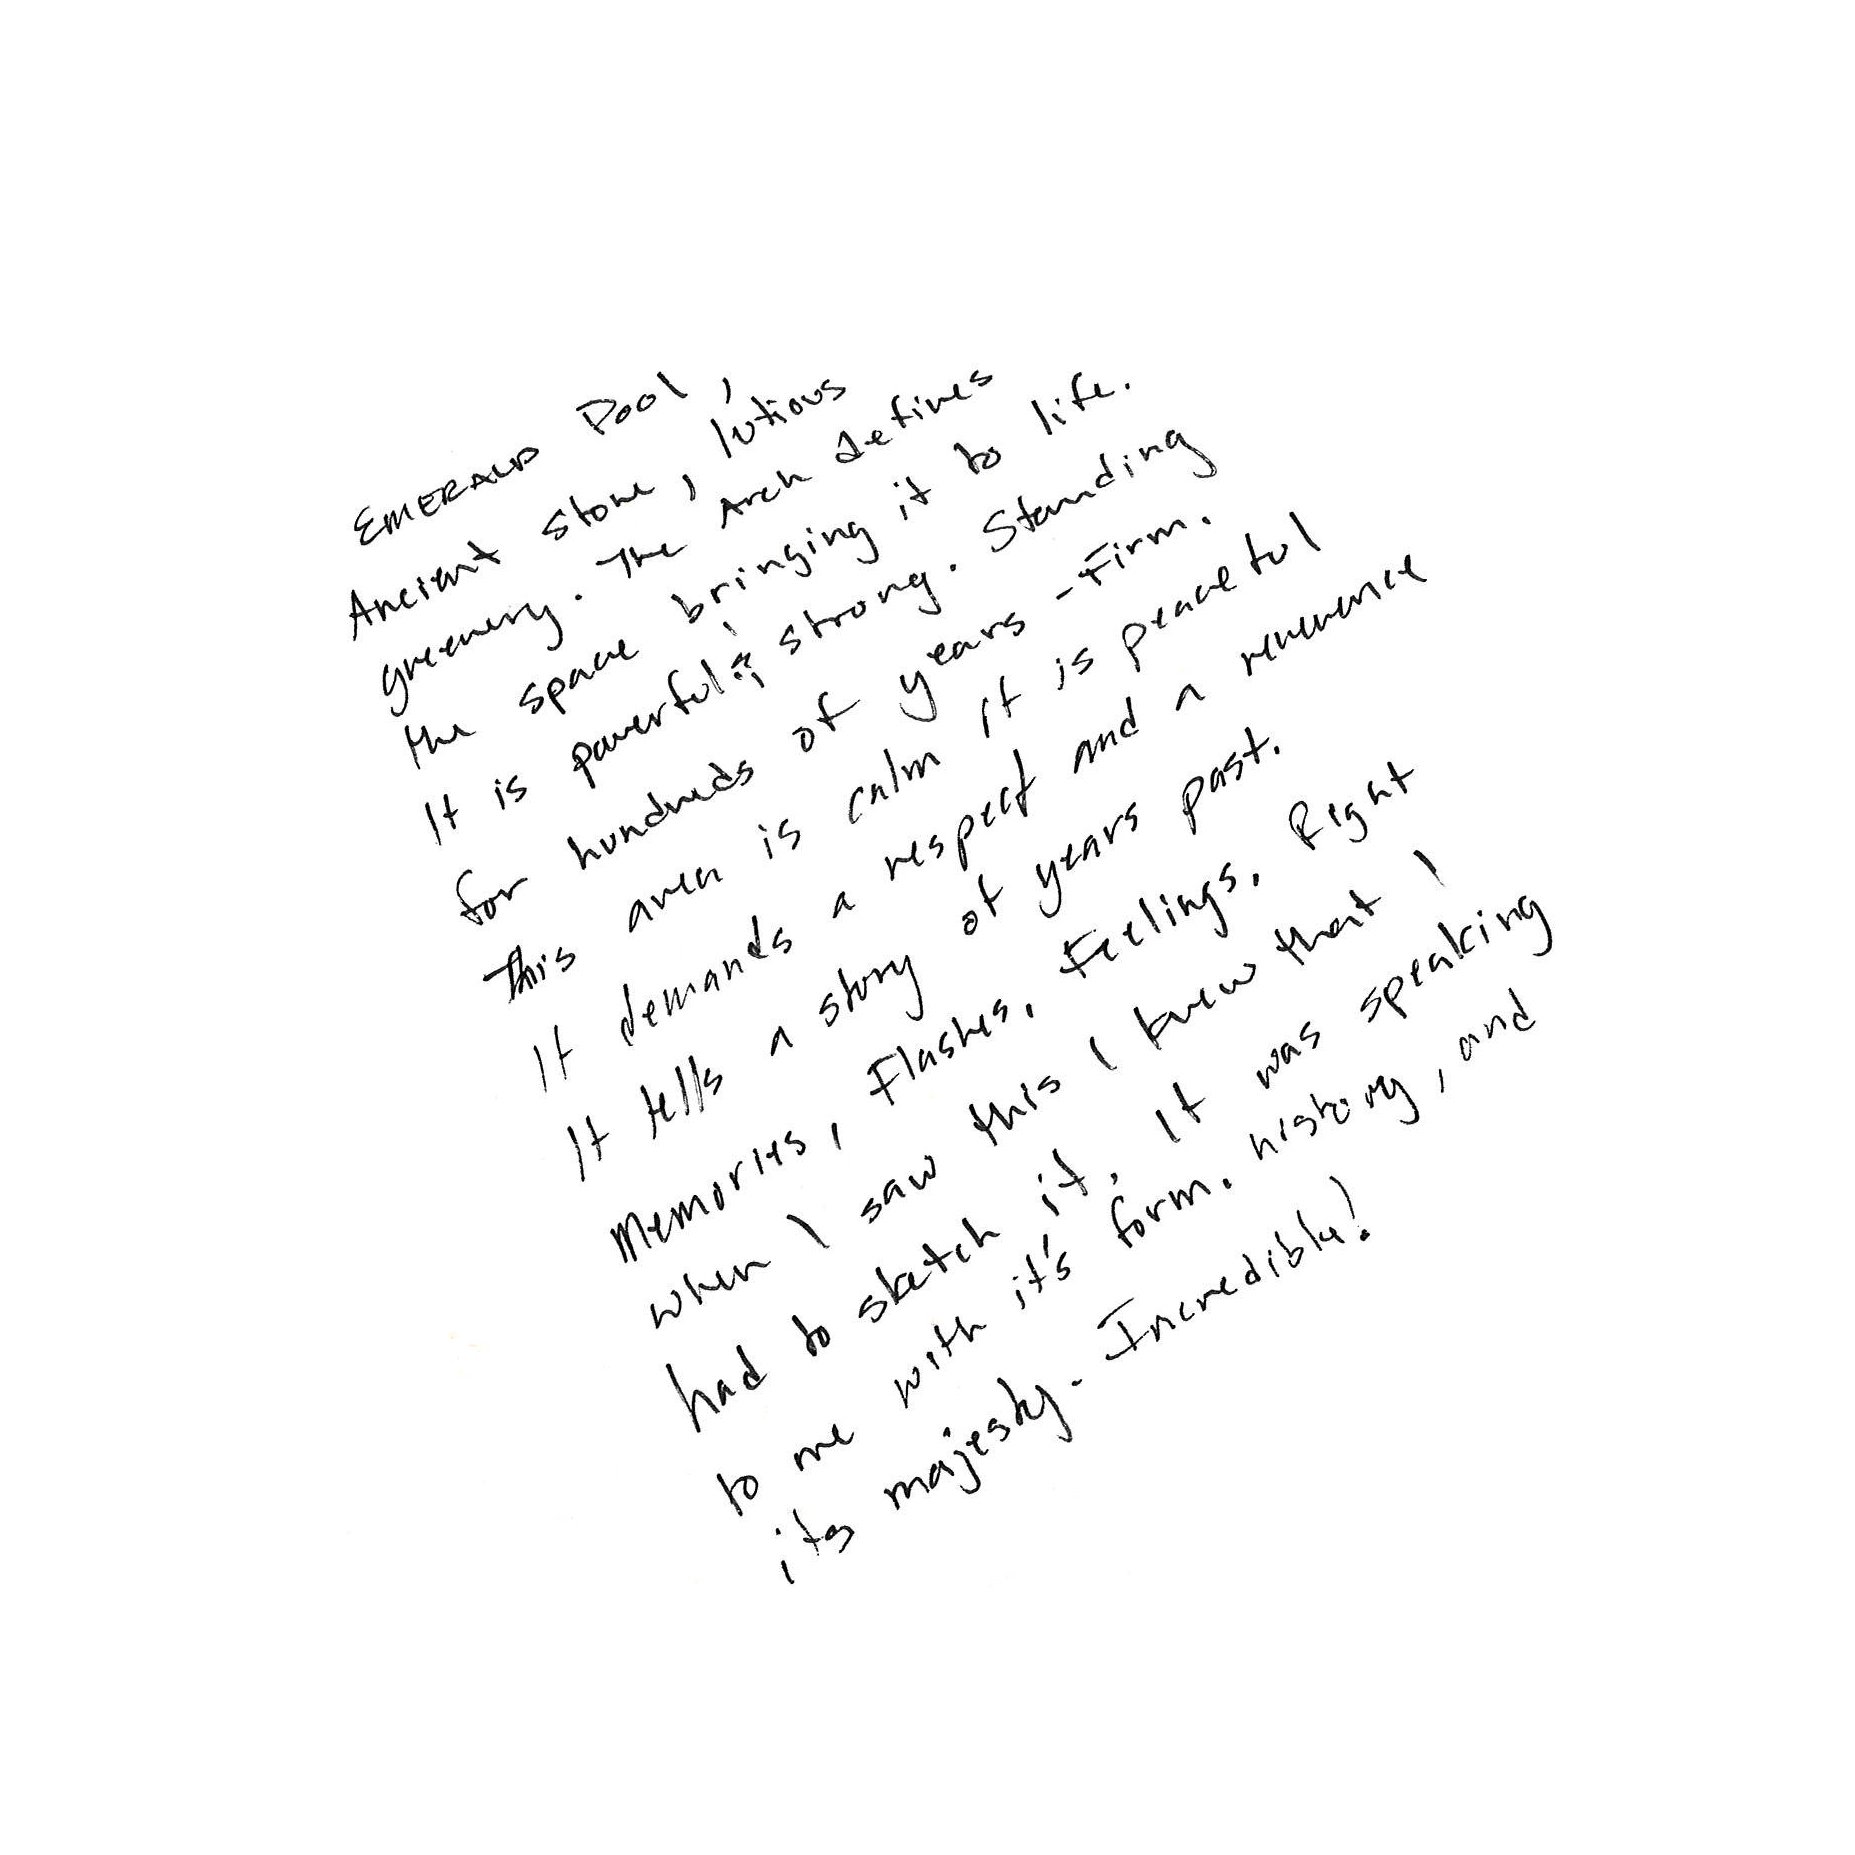 EMERALD Pool,
Ancient stone, lutious
greenery. The Arch defines
the space bringing it to life.
It is powerful & strong. Standing
for hundreds of years - Firm.
This area is calm it is peaceful
It demands a respect and a reverence
It tells a story of years past.
Memories, Flashes, Feelings. Right
when I saw this I knew that I
had to sketch it. It was speaking
to me with it's form, history, and
its majesty. Incredible!